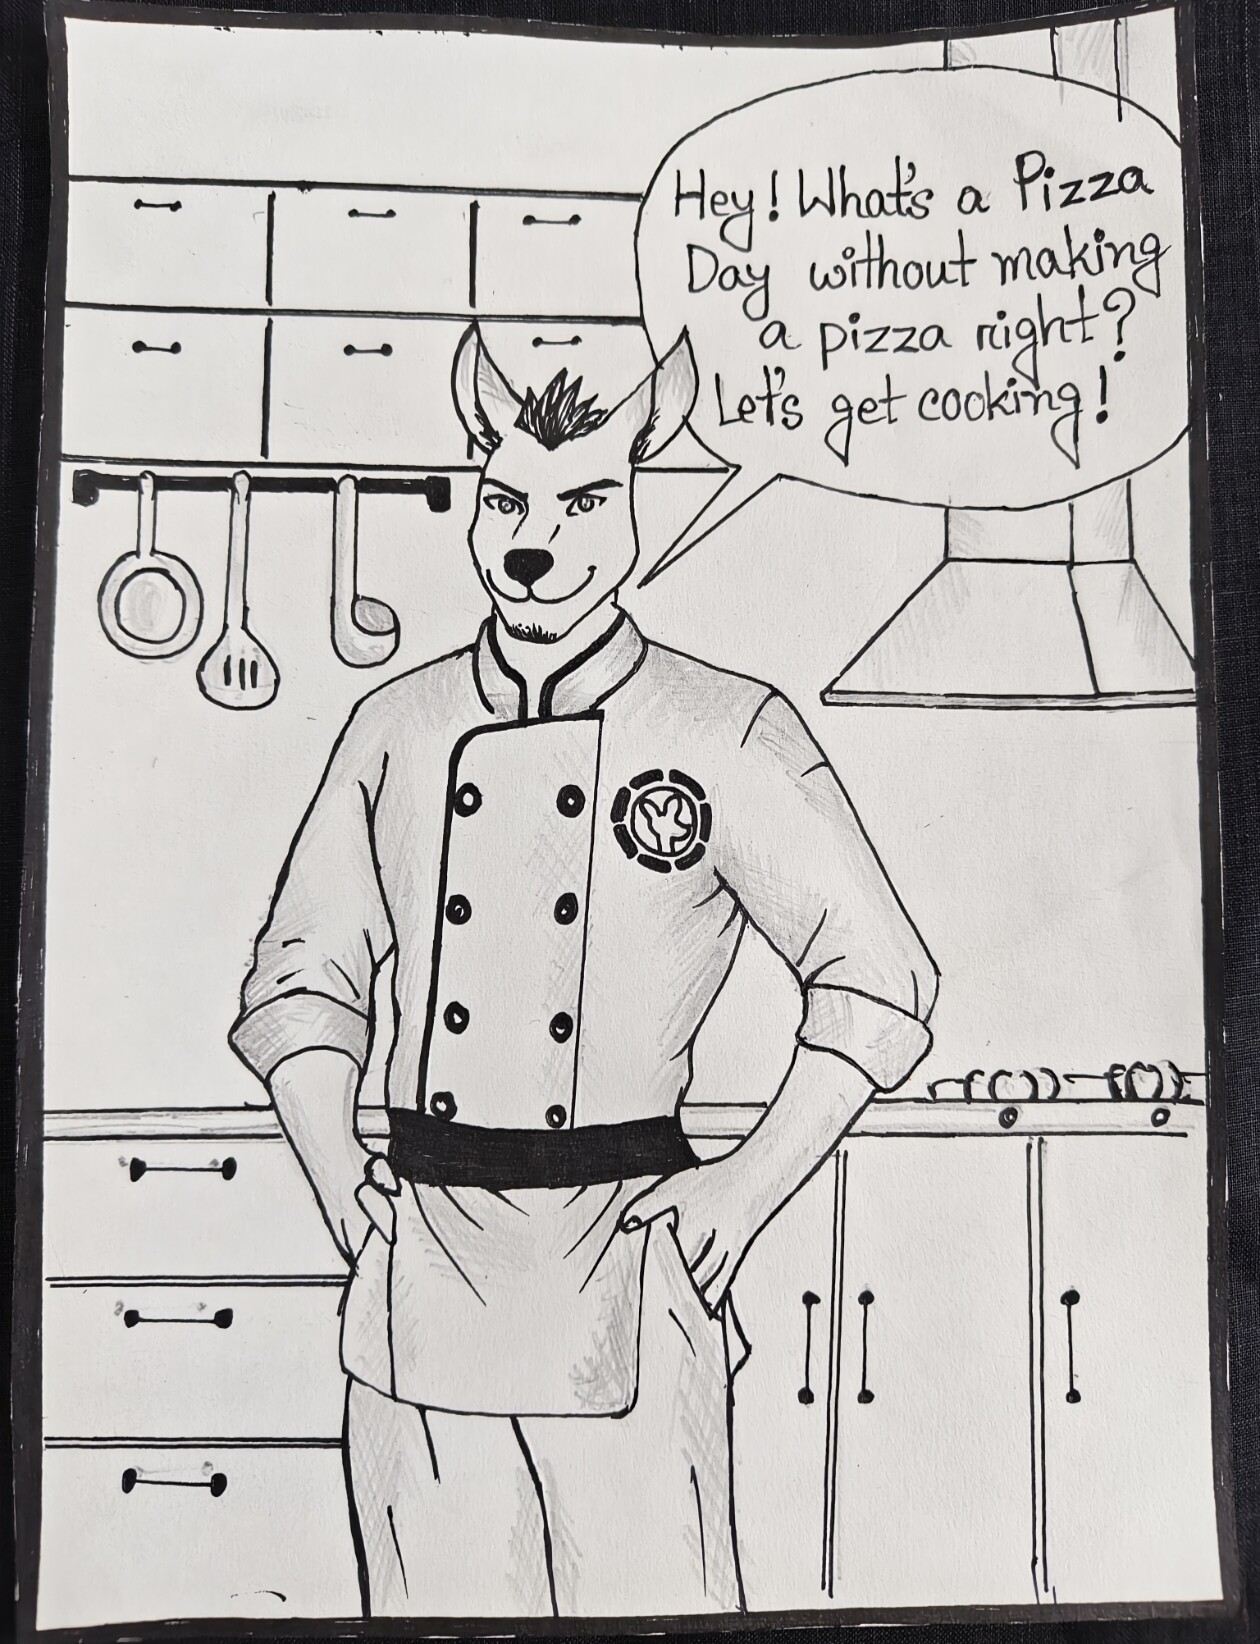 Hey! What's a Pizza
Day without making
a pizza right?
Let's get cooking!